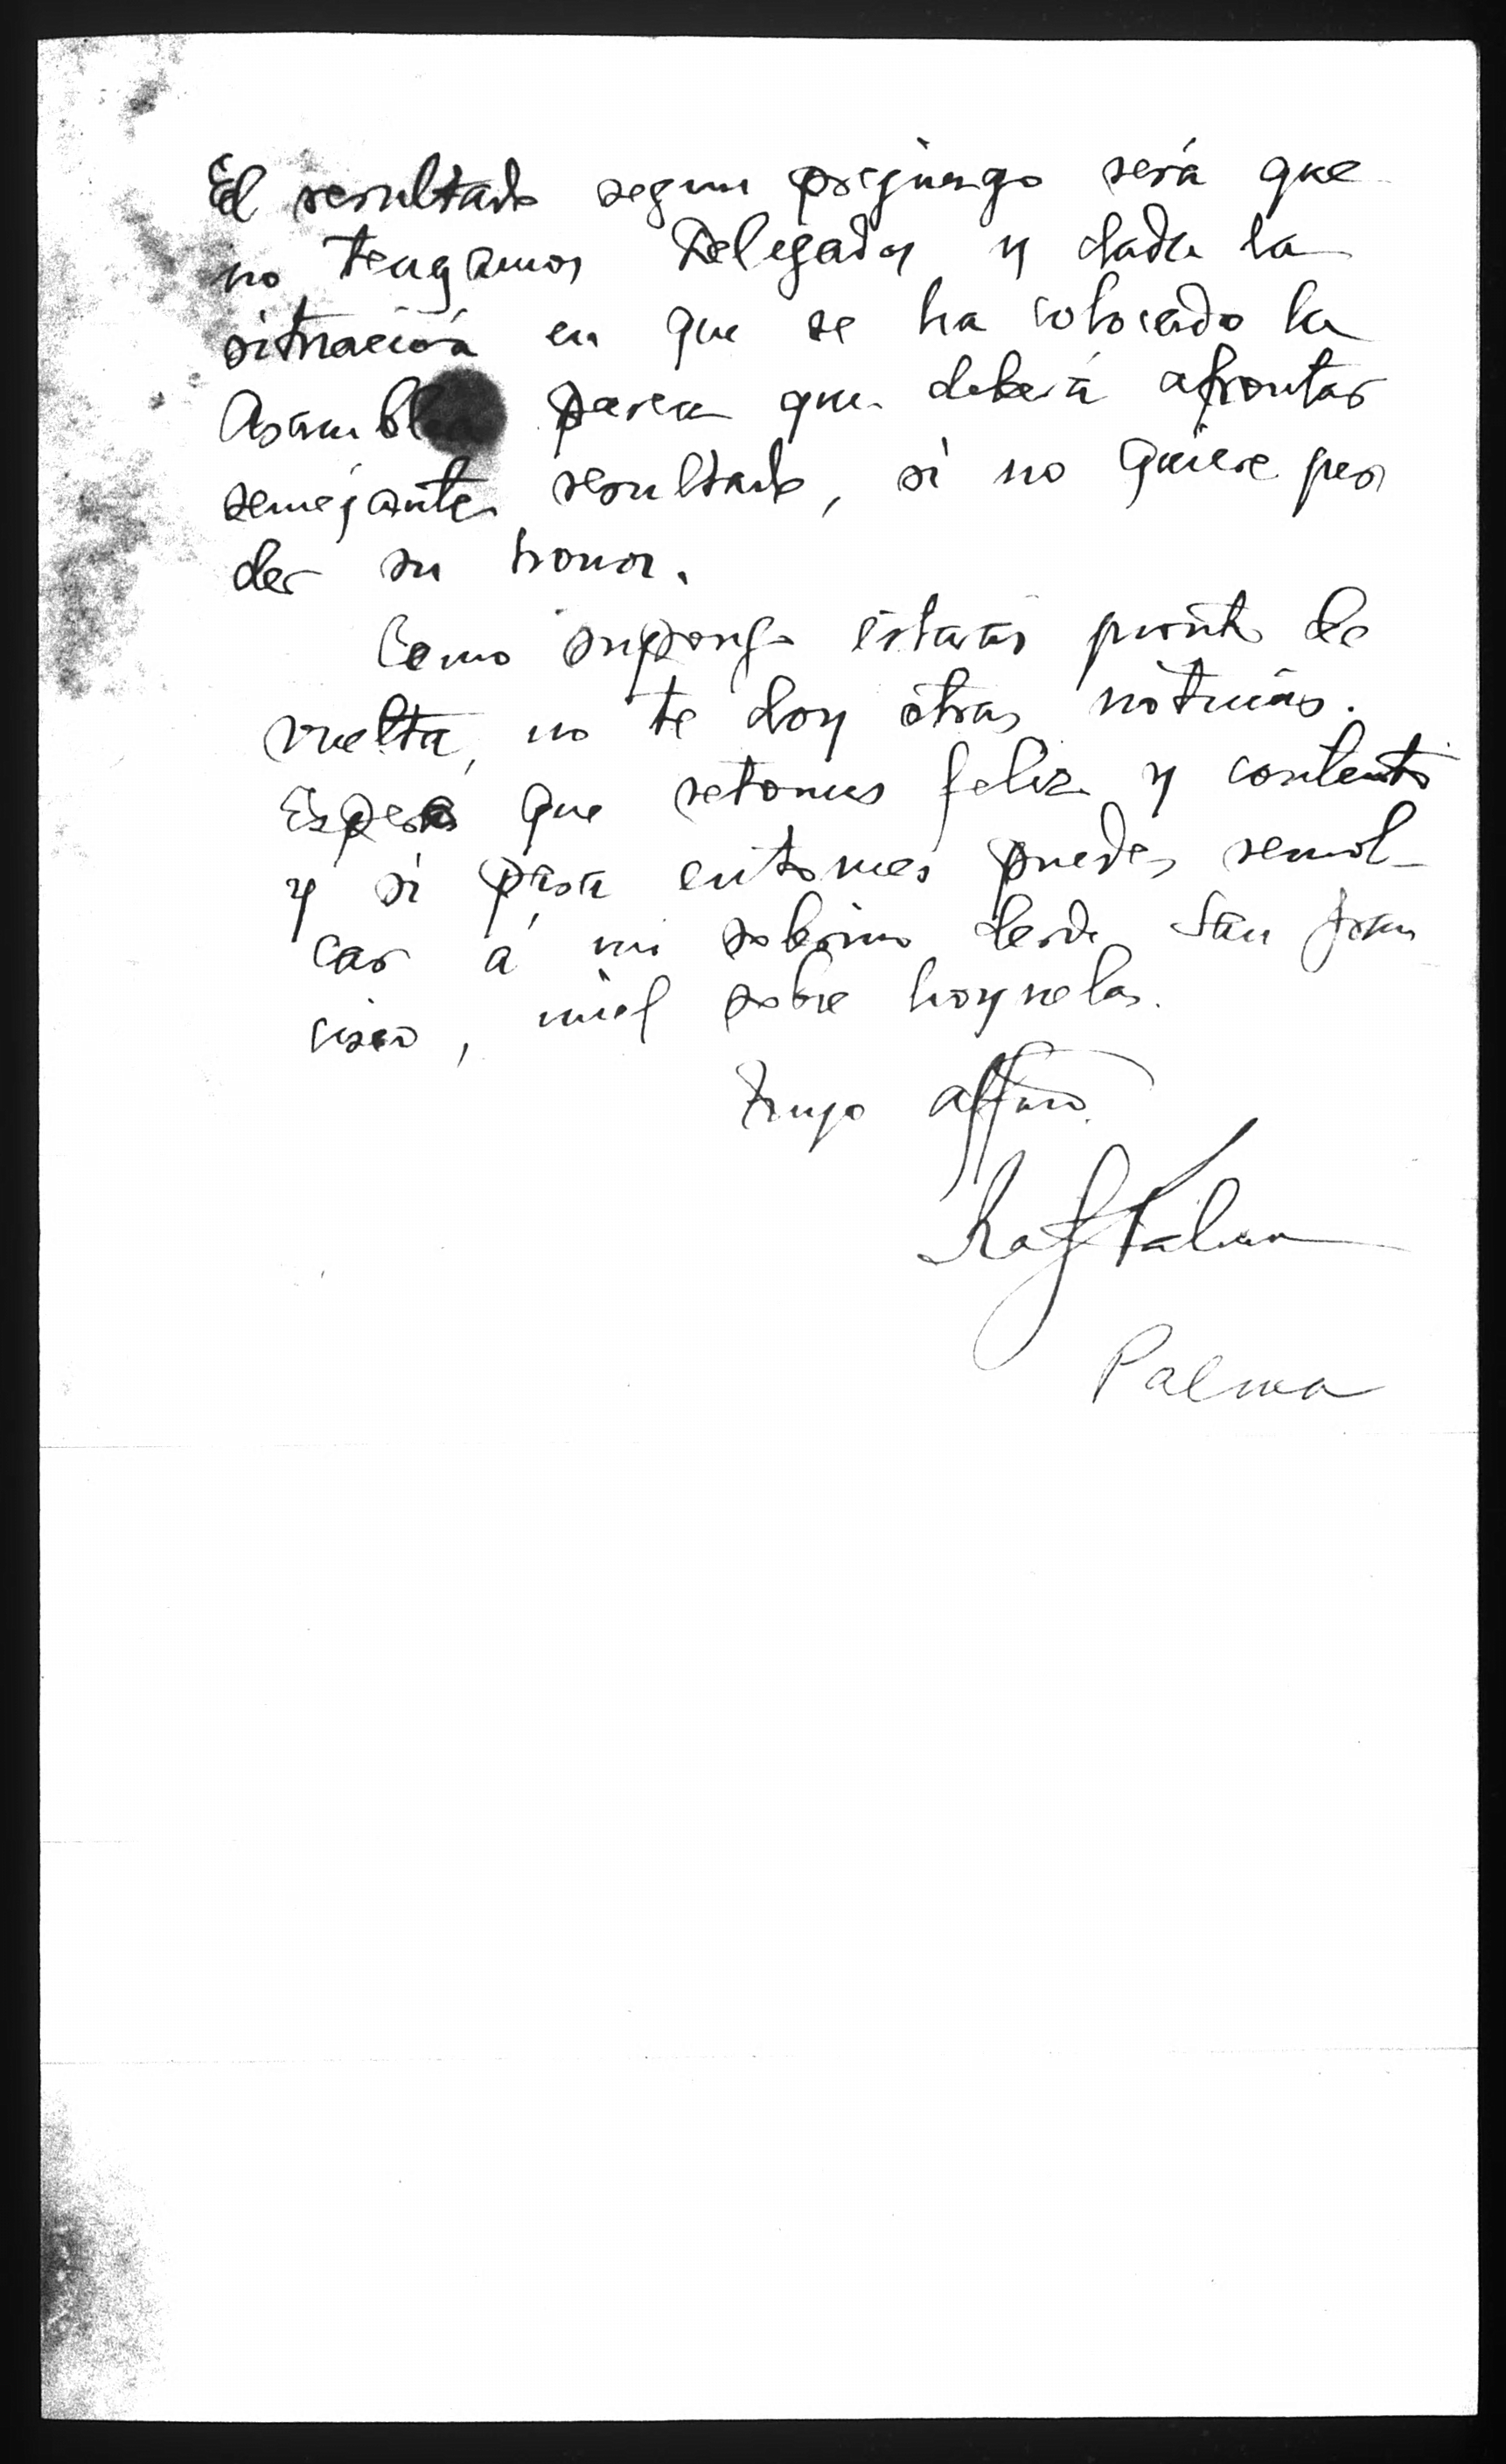 El resultado segun prejuzgo será que
no tengamos Delegados y dada la
situación en que se ha colocado la
Asamblea parece que deberá afrontar
semejante resultado, si no quiere per
der su honor.
Como supongo estarás pronto de
vuelta, no te doy otras noticias.
Espero que retornes feliz y contento
y si para entonces puedes remol-
car á mi sobrino desde San Fran
cisco, miel sobre hoynelas.
Tuyo affmo.
Raf Palma
Palma